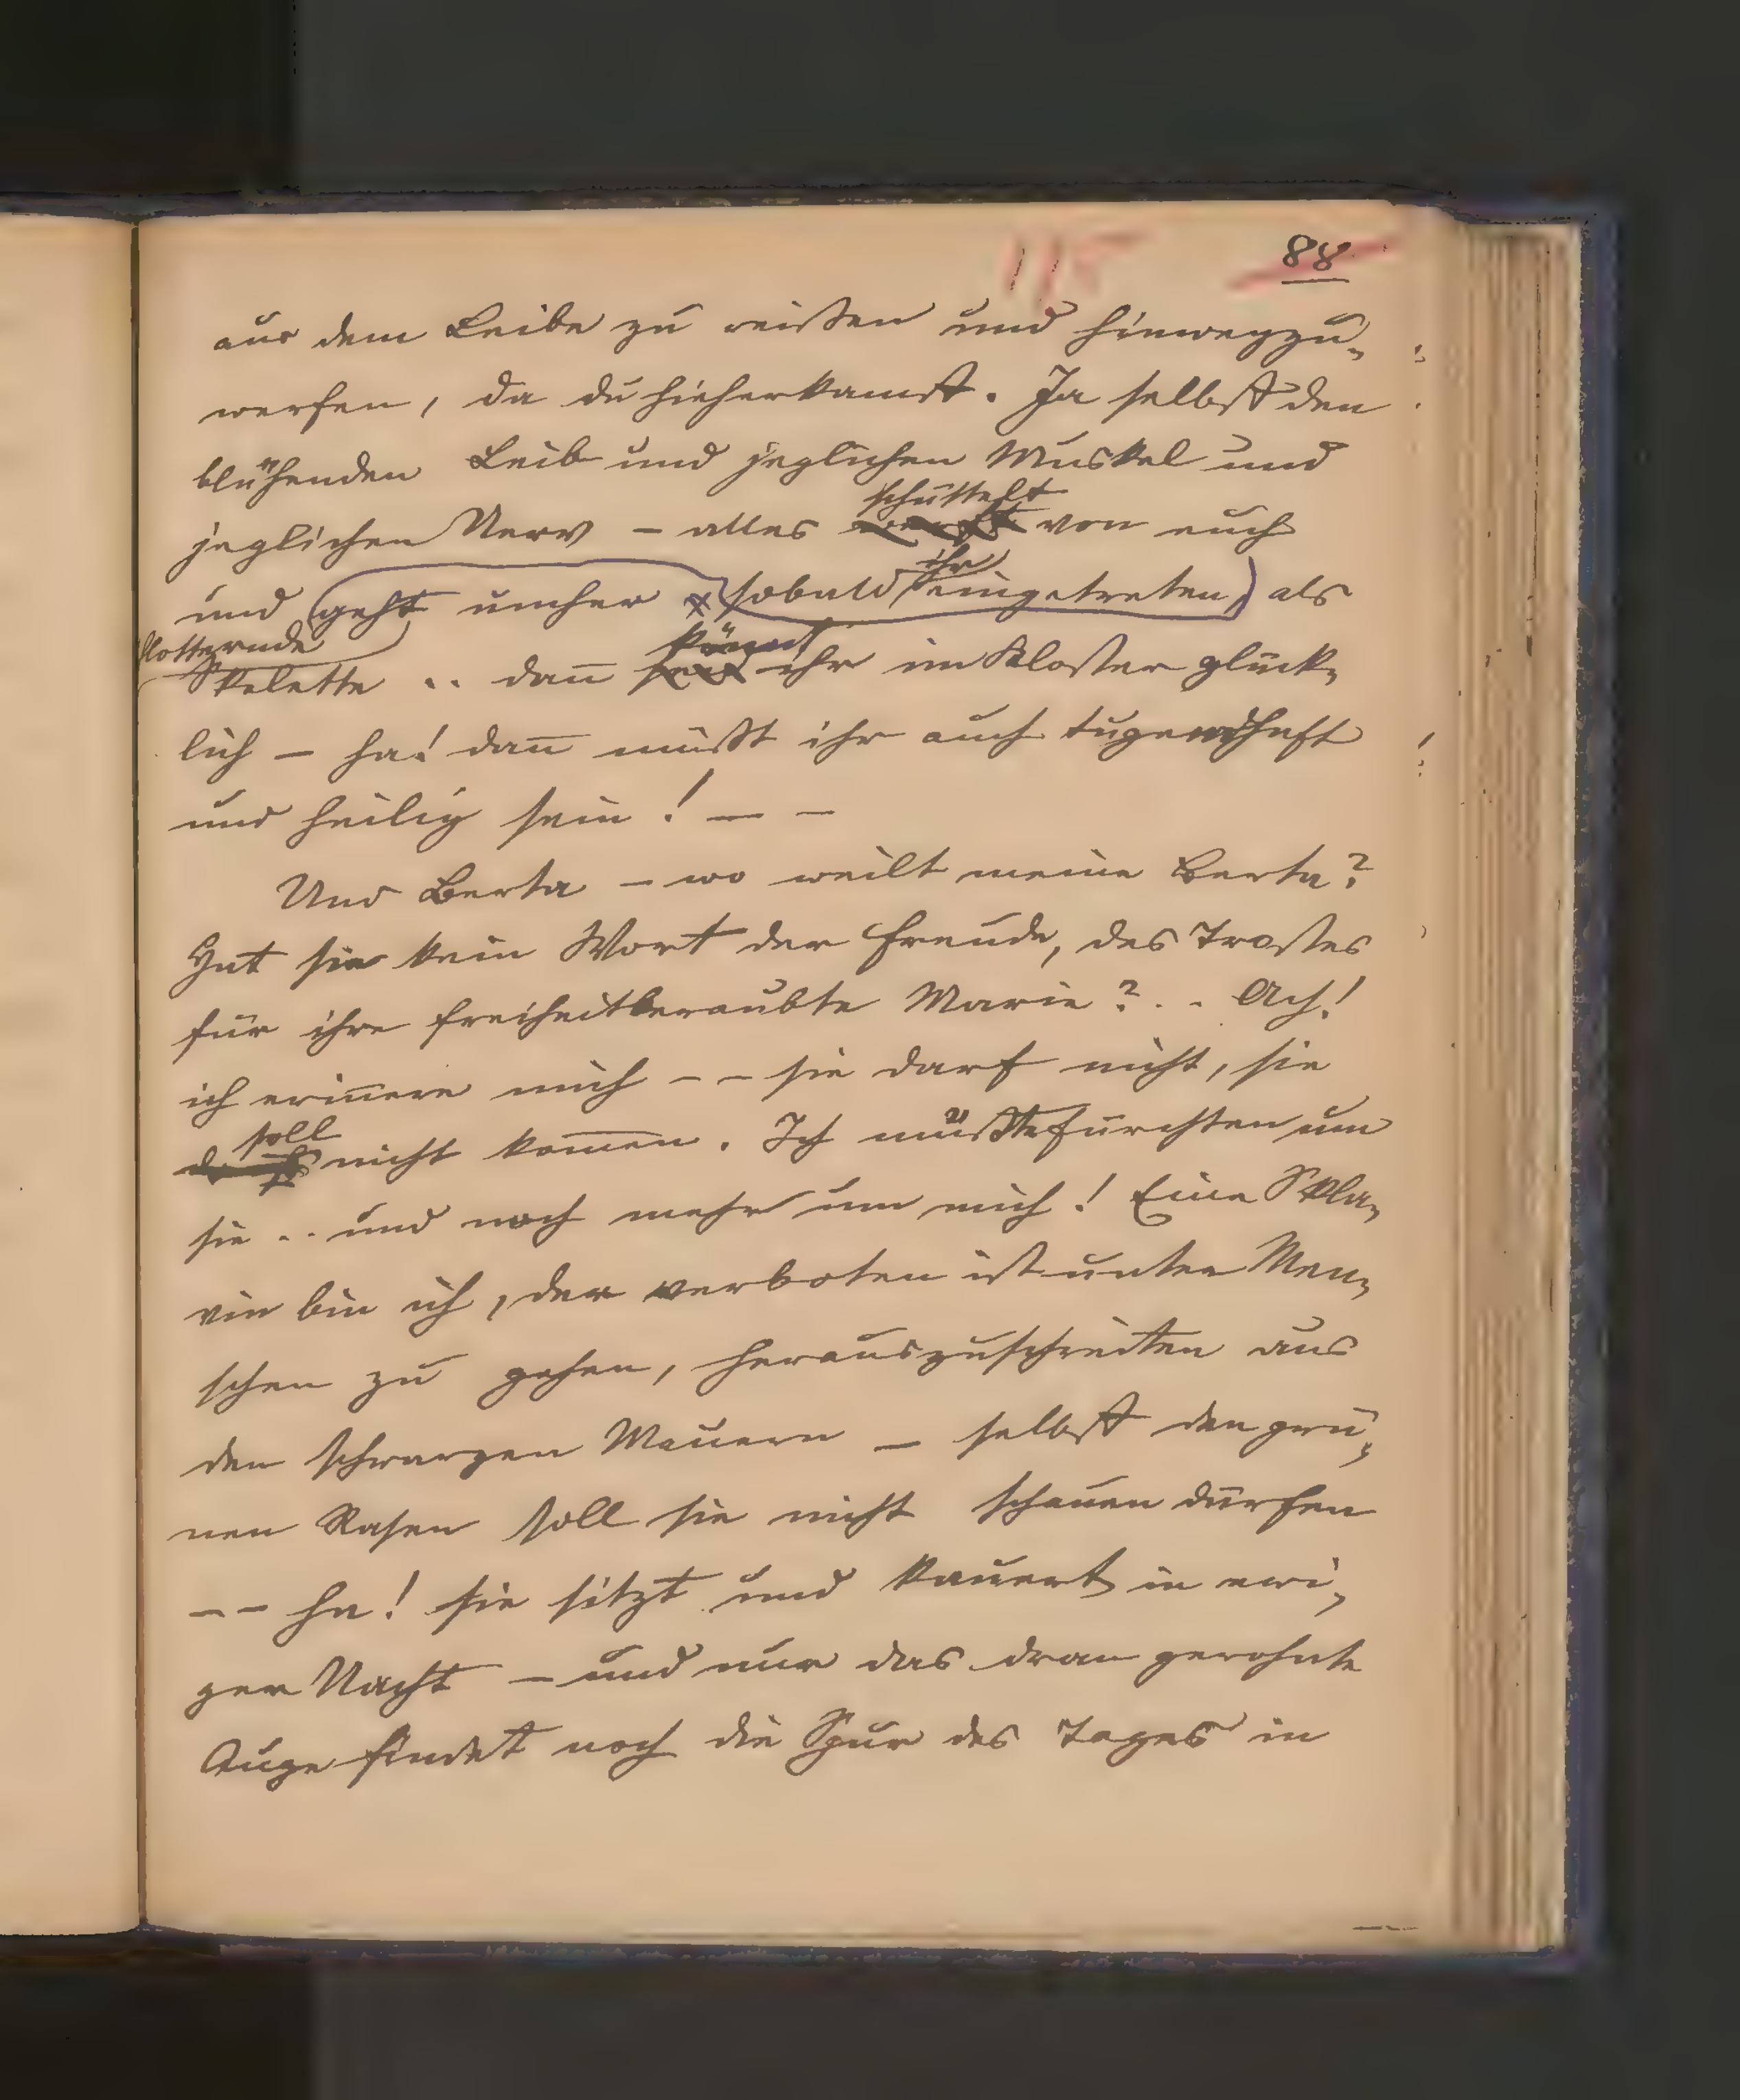 115 88
aus dem Leibe zu reißen und hinwegzu-
werfen, da du hieherkamst. Ja selbst den
blühenden Leib und jeglichen Muskel und
schüttelt
jeglichen Nerv – alles von euch
ihr
und (geht umher x (sobald eingetreten) als
schlotternde könnt
Skelette .. dan̄ ihr im Kloster glück-
lich – ha! dan̄ müßt ihr auch tugendhaft
und heilig sein! – –
Und Berta – wo weilt meine Berta?
Hat sie kein Wort der Freude, des Trostes
für ihre freiheitberaubte Marie? . . Ach!
ich erin̄ere mich – – sie darf nicht, sie
soll
darf nicht kom̄en. Ich müßte fürchten um
sie .. und noch mehr um mich! Eine Skla-
vin bin ich, der verboten ist unter Men-
schen zu gehen, herauszuschreiten aus
den schwarzen Mauern – selbst den grü-
nen Rasen soll sie nicht schauen dürfen
– – ha! sie sitzt und kauert in ewi-
ger Nacht – und nur das dran gewohnte
Auge findet noch die Spur des Tages in